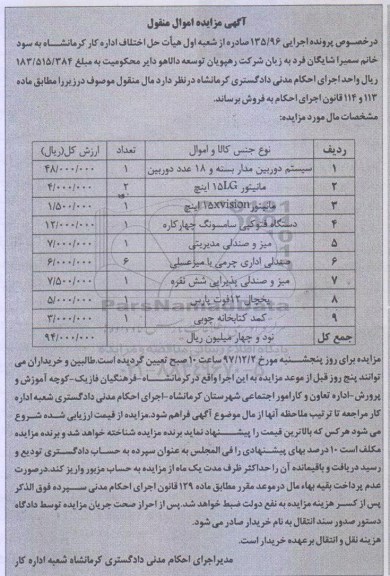 آگهی مزایده اموال منقول
درخصوص پرونده اجرایی ۱۳۵/۹۶ صادره از شعبه اول هیأت حل اختلاف اداره کار کرمانشاه به سود
خانم سمیرا شایگان فرد به زیان شرکت رهپویان توسعه دالاهو دایر محکومیت به مبلغ ۱۸۳/۵۱۵/۳۸۴
ریال واحد اجرای احکام مدنی دادگستری کرمانشاه درنظر دارد مال منقول موصوف درزیررا مطابق ماده
۱۱۳ و ۱۱۴ قانون اجرای احکام به فروش برساند.
مشخصات مال مورد مزایده:
ردیف نوع جنس کالا و اموال تعداد ارزش کل(ریال)
۱ سیستم دوربین مدار بسته و ۱۸ عدد دوربین ۱ ۴۸/۰۰۰/۰۰۰
۲ مانیتور ۱۵LG اینچ ۲ ۴/۰۰۰/۰۰۰
۳ مانیتور ۱۵xvision اینچ ۱ ۱/۵۰۰/۰۰۰
۴ دستگاه فتوکپی سامسونگ چهارکاره ۱ ۱۲/۰۰۰/۰۰۰
۵ میز و صندلی مدیریتی ۱ ۷/۰۰۰/۰۰۰
۶ صندلی اداری چرمی با میزعسلی ۶ ۶/۰۰۰/۰۰۰
۷ میز و صندلی پذیرایی شش نفره ۱ ۷/۵۰۰/۰۰۰
۸ یخچال ۱۲فوت پارس ۱ ۵/۰۰۰/۰۰۰
۹ کمد کتابخانه چوبی ۱ ۳/۰۰۰/۰۰۰
جمع کل نود و چهار میلیون ریال ۹۴/۰۰۰/۰۰۰
مزایده برای روز پنجشنبه مورخ ۹۷/۱۲/۲ ساعت ۱۰ صبح تعیین گردیده است.طالبین و خریداران می
توانند پنج روز قبل از موعد مزایده به این اجرا واقع درکرمانشاه-فرهنگیان فازیک-کوچه آموزش و
پرورش-اداره تعاون و کارامور اجتماعی شهرستان کرمانشاه -اجرای احکام مدنی دادگستری شعبه اداره
کار مراجعه تا ترتیب ملاحظه آنها از مال موضوع آگهی فراهم شود.مزایده از قیمت ارزیابی شده شروع
می شود هرکس که بالاترین قیمت را پیشنهاد نماید برنده مزایده شناخته خواهد شد و برنده مزایده
مکلف است ۱۰ درصد بهای پیشنهادی را فی المجلس به عنوان سپرده به حساب دادگستری تودیع و
رسید دریافت و باقیمانده آن را حداکثر ظرف مدت یک ماه از مزایده به حساب مزبور واریز کند.درصورت
عدم پرداخت بقیه بهاء مال درموعد مقرر مطابق ماده ۱۲۹ قانون اجرای احکام مدنی سپرده فوق الذکر
پس از کسر هزینه مزایده به نفع دولت ضبط خواهد شد.پس از احراز صحت جریان مزایده توسط دادگاه
دستور صدور سند انتقال به نام خریدار صادر می شود.
هزینه نقل و انتقال برعهده خریدار است.
مدیراجرای احکام مدنی دادگستری کرمانشاه شعبه اداره کار